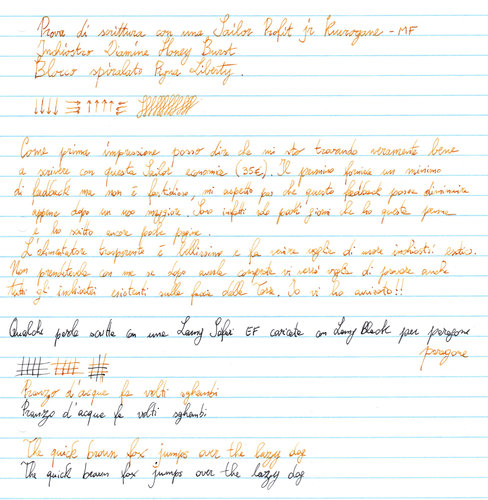 Prova di scrittura con una Sailor Profit jr Kurogane - MF
Inchiostro Diamine Honey Burst
Blocco spiralato Pigna Liberty.
Come prima impressione posso dire che mi sto trovando veramente bene
a scrivere con questa Sailor economica (35€). Il pennino fornisce un minimo
di feedback ma non è fastidioso, mi aspetto poi che questo feedback possa diminuire
appena dopo un uso maggiore. Sono infatti solo pochi giorni che ho questa penna
e ho scritto ancora poche pagine.
L'alimentatore trasparente è bellissimo e fa venire voglia di usare inchiostri esotici.
Non prendetevela con me se dopo averla comprata vi verrà voglia di provare anche
tutti gli inchiostri esistenti sulla faccia della Terra. Io vi ho avvisato!!
Qualche parola scritta con una Lamy Safari EF caricata con Lamy Black per paragone
paragone
Pranzo d'acqua fa volti sghembi
Pranzo d'acqua fa volti sghembi
The quick brown fox jumps over the lazy dog
The quick brown fox jumps over the lazy dog